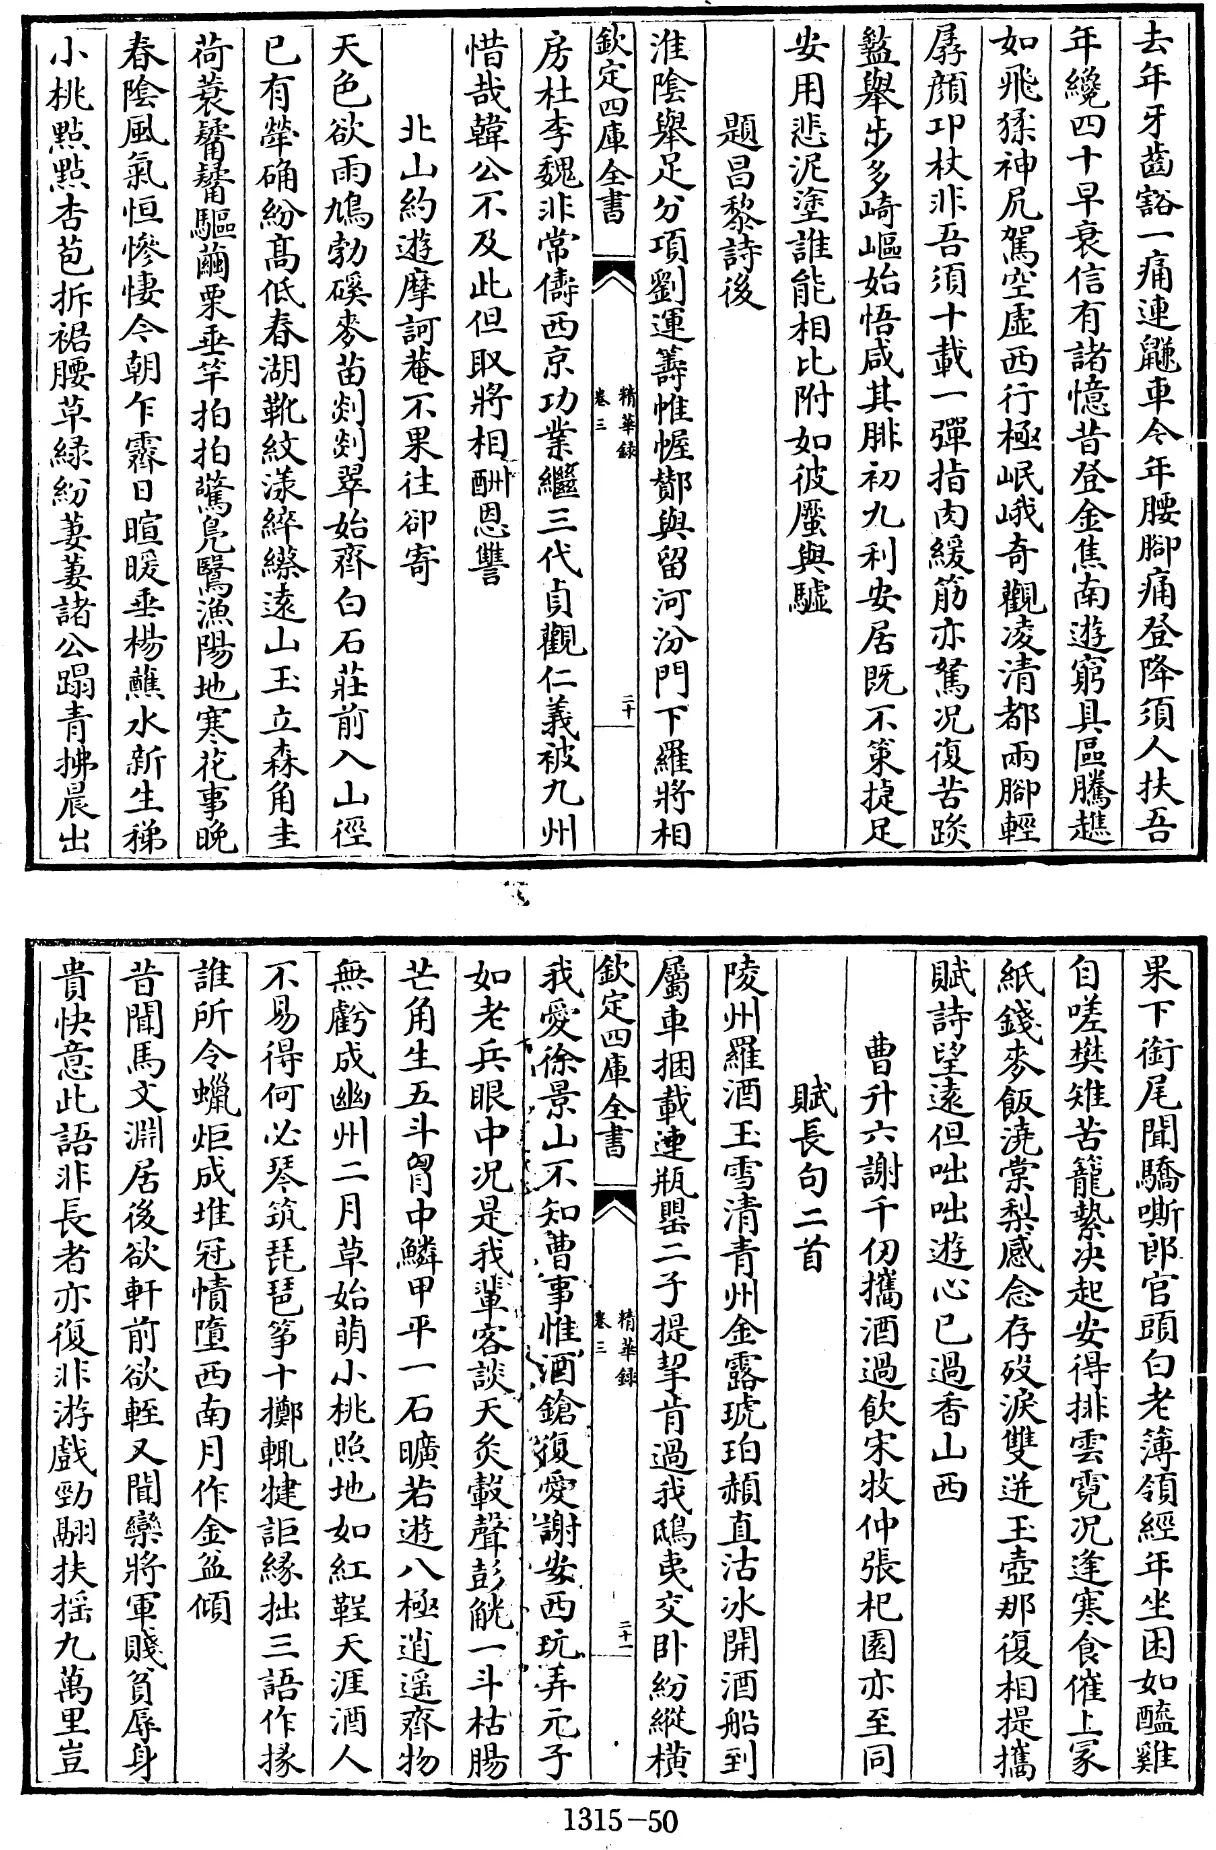 去年牙齒豁一痛連𪖙車今年腰脚痛登降須人扶吾
年纔四十早衰信有諸憶昔登金焦南遊窮具區騰趠
如飛猱神尻駕空虛西行極岷峨奇觀凌清都兩脚輕
孱顔卭杖非吾須十載一彈指肉緩筋亦駑况復苦跋
盭舉步多崎嶇始悟咸其腓初九利安居既不策捷足
安用悲泥塗誰能相比附如彼蟨與驉
題昌黎詩後
淮陰舉足分項劉運籌帷幄酇與留河汾門下羅將相
欽定四庫全書
精華録
卷三
二十
房杜李魏非常儔西京功業繼三代貞觀仁義被九州
惜哉韓公不及此但取將相酬恩讐
北山約遊摩訶菴不果往卻寄
天色欲雨鳩勃磎麥苗剡剡翠始齊白石莊前入山徑
已有犖确紛髙低春湖靴紋漾綷縩遠山玉立森角圭
荷蓑觺觺驅繭栗垂竿拍拍驚鳬鷖漁陽地寒花事晩
春陰風氣恒慘悽今朝乍霽日暄暖垂楊蘸水新生稊
小桃㸃㸃杏苞拆裙腰草緑紛萋萋諸公蹋青拂晨出
果下銜尾聞驕嘶郎官頭白老薄領經年坐困如醯雞
自嗟樊雉苦籠縶决起安得排雲霓况逢寒食催上冢
紙錢麥飯澆棠梨感念存殁淚雙迸玉壺那復相提攜
賦詩望遠但咄咄遊心已過香山西
曹升六謝千仞攜酒過飲宋牧仲張杞園亦至同
賦長句二首
陵州羅酒玉雪清青州金露琥珀頳直沽冰開酒船到
屬車捆載連瓶罌二子提挈肯過我鴟夷交卧紛縱橫
欽定四庫全書
精華録
卷三
二十一
我愛徐景山不知曹事惟酒鎗復愛謝安西玩弄元子
如老兵眼中况是我輩客談天炙轂聲彭觥一斗枯腸
芒角生五斗胷中鱗甲平一石曠若遊八極逍遥齊物
無虧成幽州二月草始萌小桃照地如紅鞓天涯酒人
不易得何必琴筑琵琶箏十擲輒犍詎緣拙三語作掾
誰所令蠟炬成堆冠幘墮西南月作金盆傾
昔聞馬文淵居後欲軒前欲輊又聞欒將軍賤貧辱身
貴快意此語非長者亦復非游戲勁翮扶揺九萬里豈
1315-50